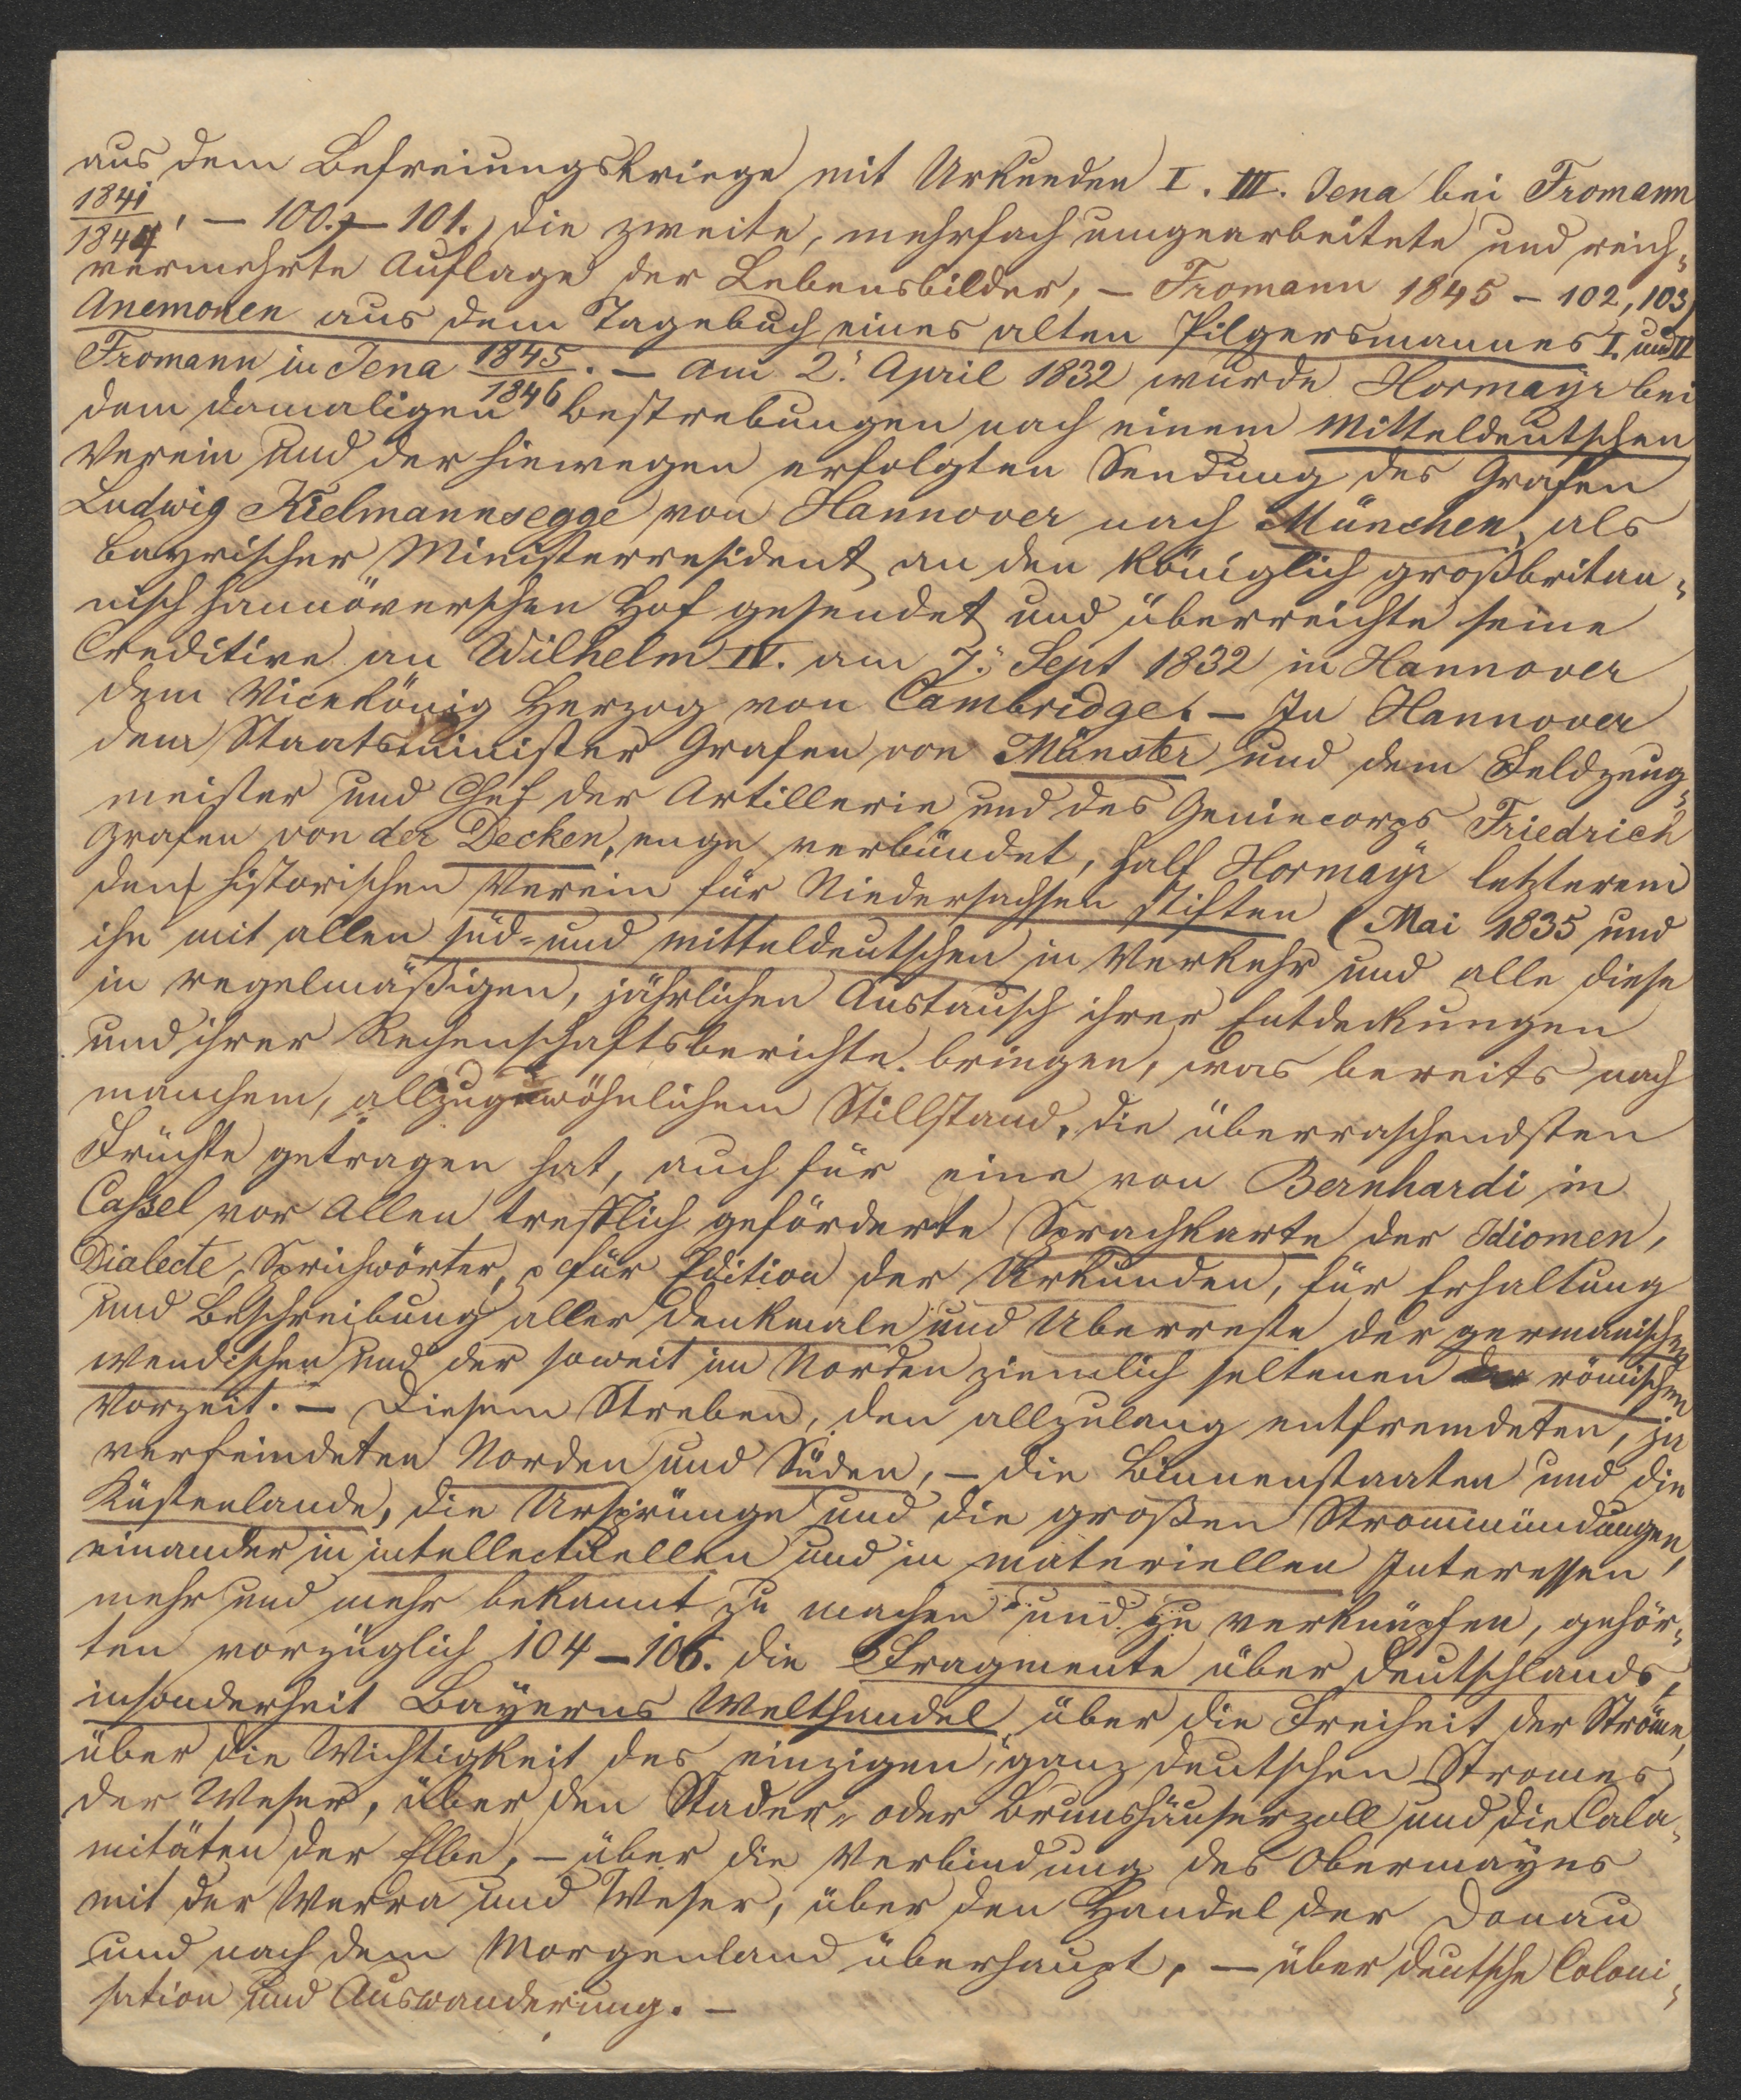 aus dem Befreiungskriege mit Urkunden I. III. Jena bei Fromann
1841/1844, — 100. — 101., die zweite, mehrfach umgearbeitete und reich-
vermehrte Auflage der Lebensbilder, — Fromann 1845 — 102, 103)
Anemonen aus dem Tagebuch eines alten Pilgersmannes I. und II
Fromann in Jena 1845/1846. — Am 2. April 1832 wurde Hormayr bei
dem damaligen Bestrebungen nach einem Mitteldeutschen
Verein und der hiewegen erfolgten Sendung des Grafen
Ludwig Kielmannsegge von Hannover nach München, als
bayrischer Ministerresident an den königlich großbritan-
nisch hannöverschen Hof gesendet und überreichte seine
Creditive an Wilhelm IV. am 7. Sept 1832 in Hannover
dem Vicekönig Herzog von Cambridge. — In Hannover
dem Staatsminister Grafen von Münster und dem Feldzeug-
meister und Chef der Artillerie und des Geniecorps Friedrich
Grafen von der Decken, enge verbündet, half Hormayr letzterem
den historischen Verein für Niedersachsen stiften (Mai 1835 und
ihn mit allen süd- und mitteldeutschen in Verkehr und alle diese
in regelmäßigen, jährlichen Austausch ihrer Entdeckungen
und ihrer Rechenschaftsberichte bringen, was bereits nach
manchem, allzugewöhnlichem Stillstand, die überraschendsten
Früchte getragen hat, auch für eine von Bernhardi in
Cassel vor Allen trefflich geförderte Sprachkarte der Idiomen,
Dialecte, Sprichwörter, für Edition der Urkunden, für Erhaltung
und Beschreibung aller Denkmale und Überreste der germanischen
wendischen und der soweit im Norden ziemlich seltenen römischen
Vorzeit. — Diesem Streben, den allzulang entfremdeten, ja
verfeindeten Norden und Süden, — die Binnenstaaten und die
Küstenlande, die Ursprünge und die großen Strommündungen,
einander in intellectuellen und in materiellen Interessen,
mehr und mehr bekannt zu machen und zu verknüpfen, gehör-
ten vorzüglich 104 — 106. die Fragmente über Deutschlands,
insonderheit Bayerns Welthandel, über die Freiheit der Ströme,
über die Wichtigkeit des einzigen, ganz deutschen Stromes
der Weser, über den Stader- oder Brunshäuserzoll und die Cala-
mitäten der Elbe, — über die Verbindung des Obermayns
mit der Werra und Weser, über den Handel der Donau
und nach dem Morgenland überhaupt, — über deutsche Coloni-
sation und Auswanderung. —